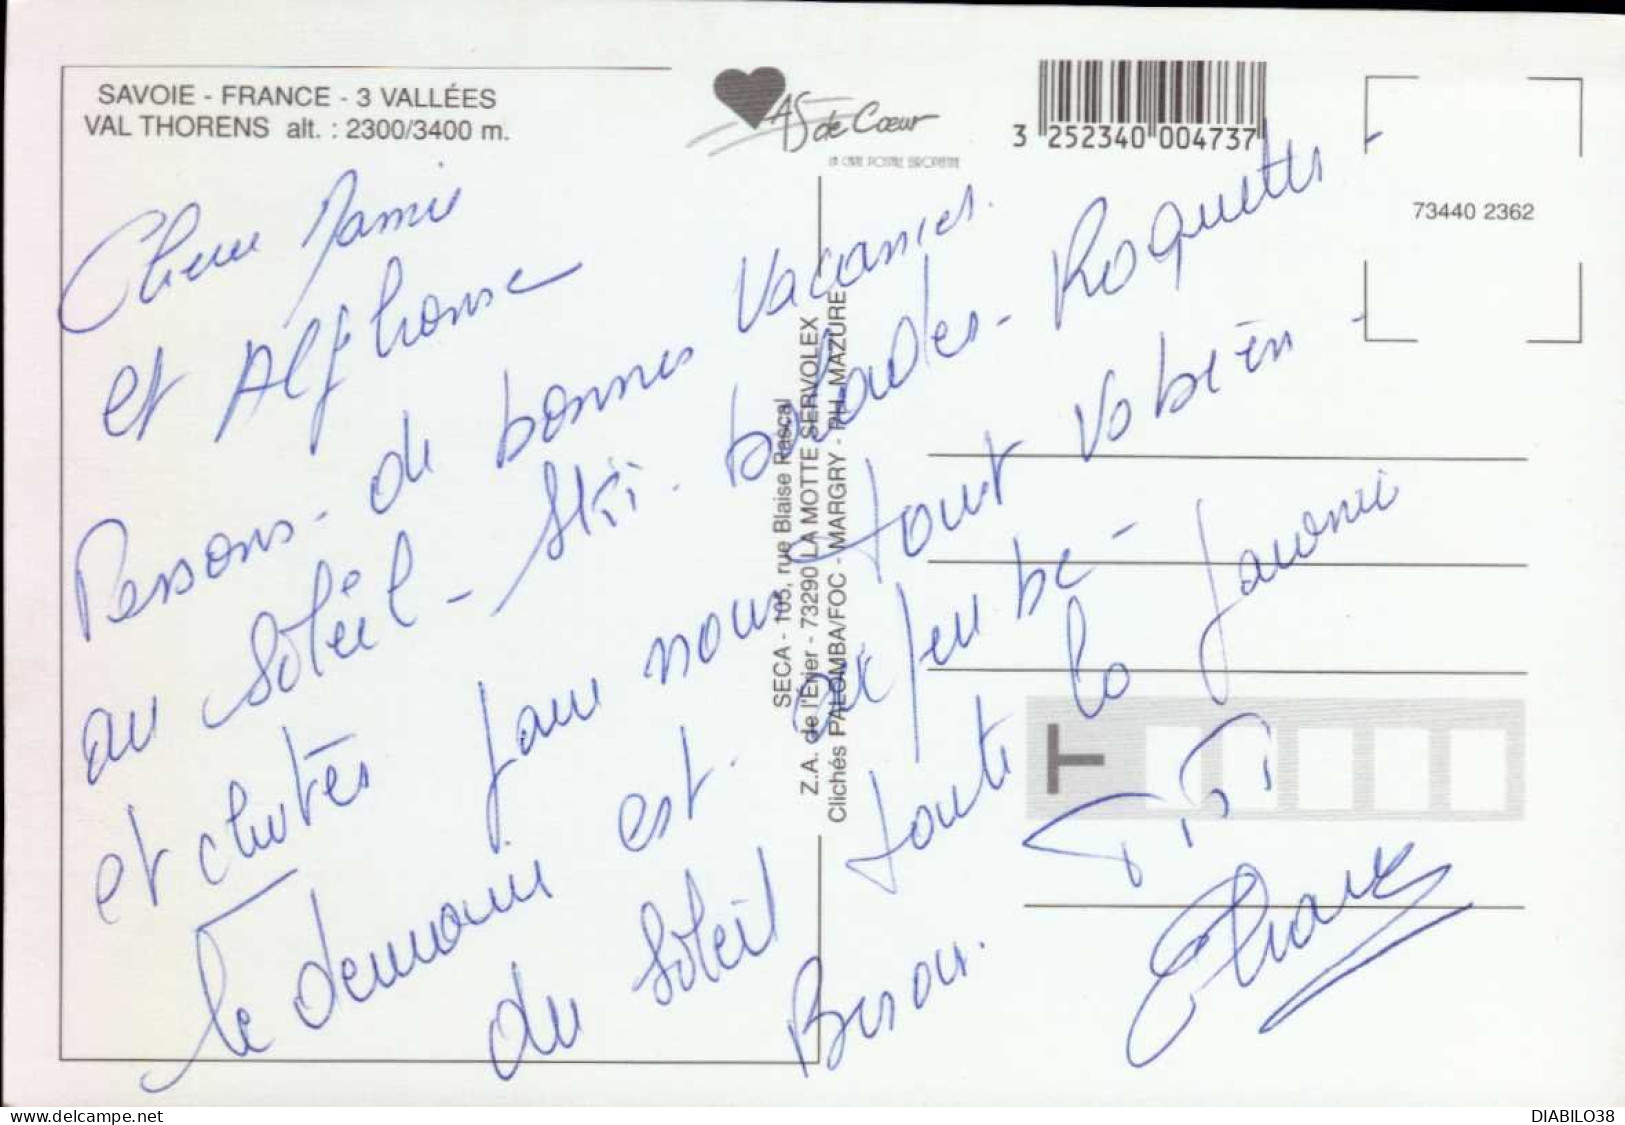 SAVOIE - FRANCE - 3 VALLÉES
VAL THORENS alt. : 2300/3400 m.
AS de Cœur
LA CARTE POSTALE EUROPEENNE
3 252340 004737
73440 2362
Chere Mamie
et Alphonse
Passons - de bonnes Vacances.
au soleil - ski - balades - Roquettes -
et chutes pour nous tout va bien -
le domaine est superbe -
du soleil toute la journée
Bisous.
SECA - 105, rue Blaise Pascal
Z.A. de l'Erier - 73290 LA MOTTE SERVOLEX
Clichés PALOMBA/FOC - MARGRY - PH. MAZURE
T
DIABILO38